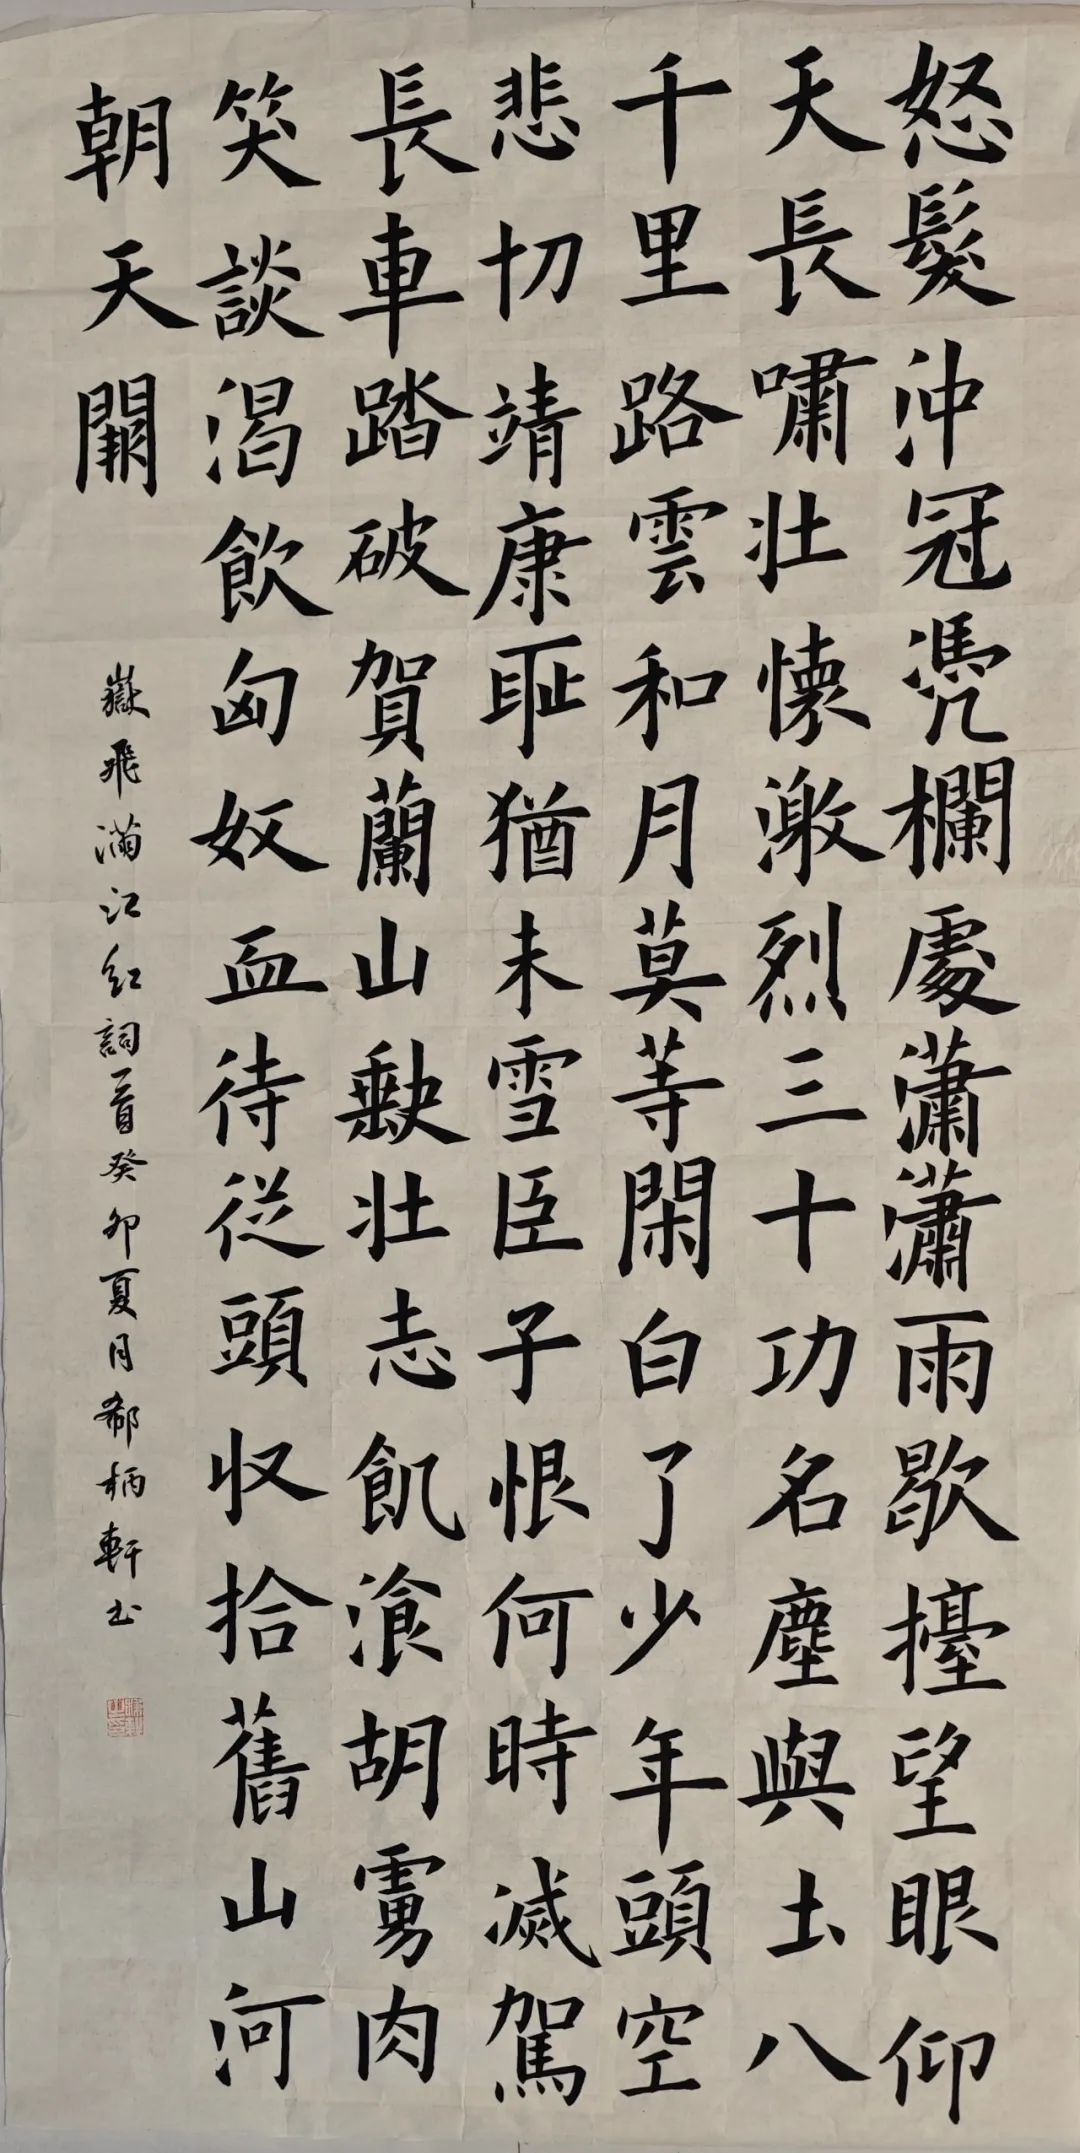 怒髮沖冠憑欄處瀟瀟雨歇擡望眼仰
天長嘯壯懷激烈三十功名塵與土八
千里路雲和月莫等閑白了少年頭空
悲切靖康恥猶未雪臣子恨何時滅駕
長車踏破賀蘭山缺壯志飢飡胡虜肉
笑談渴飲匈奴血待從頭收拾舊山河
朝天闕
嶽飛滿江紅詞一首癸卯夏月郗柄軒书